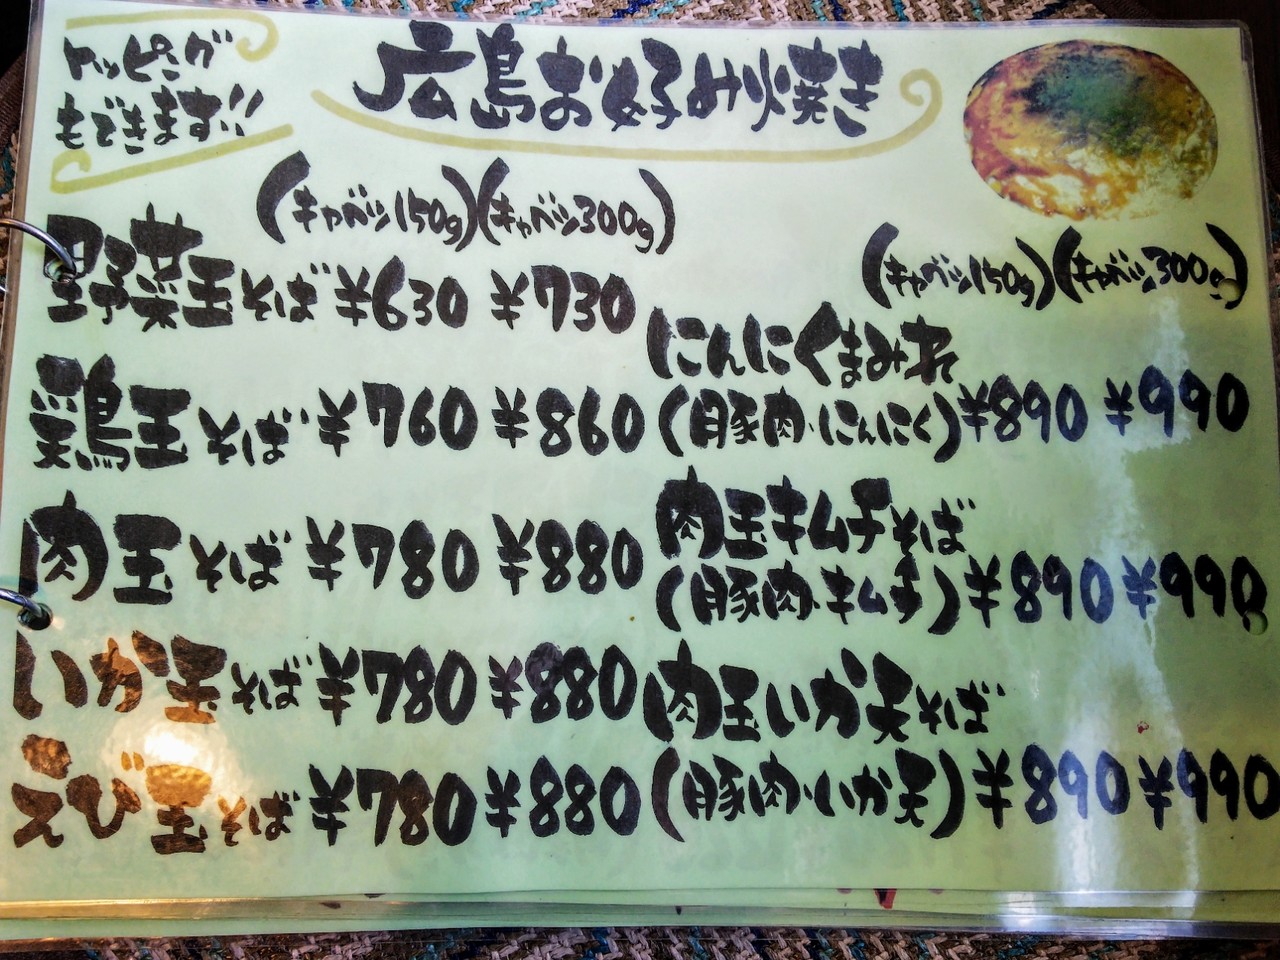 トッピング
もできます!!
広島お好み焼き
(キャベツ150g)(キャベツ300g)
野菜玉そば ¥630 ¥730
鶏玉そば ¥760 ¥860
肉玉そば ¥780 ¥880
いか玉そば ¥780 ¥880
えび玉そば ¥780 ¥880
(キャベツ150g)(キャベツ300g)
にんにくまみれ
(豚肉・にんにく) ¥890 ¥990
肉玉キムチそば
(豚肉・キムチ) ¥890 ¥990
肉玉いか天そば
(豚肉・いか天) ¥890 ¥990